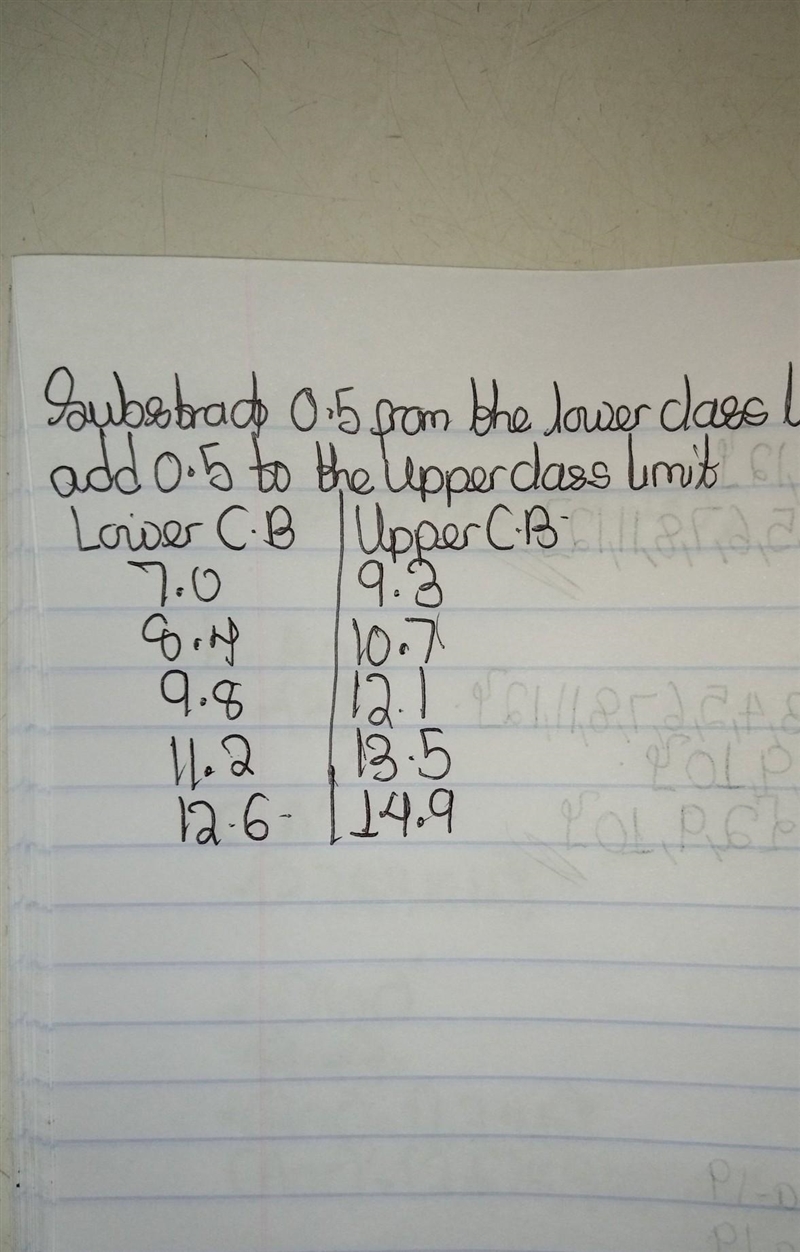 Substract 0.5 from the lower class l
add 0.5 to the Upper class limit
Lower C.B Upper C.B
7.0 9.3
8.4 10.7
9.8 12.1
11.2 13.5
12.6 14.9